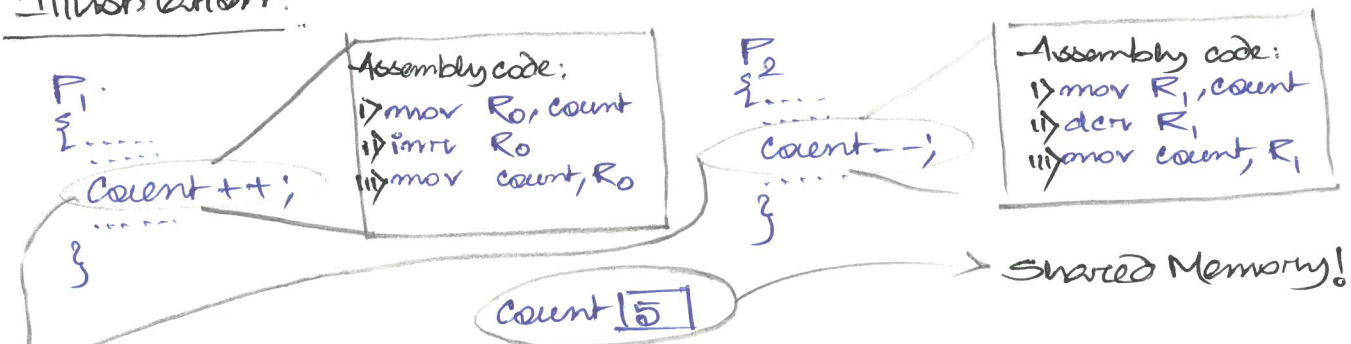 Illustration:
P1.
{.....
.....
Count++;
.....
}
Assembly code:
i) mov R0, count
ii) incr R0
iii) mov count, R0
P2
{.....
.....
Count--;
.....
}
Assembly code:
i) mov R1, count
ii) dcr R1
iii) mov count, R1
Count 5
Shared Memory!